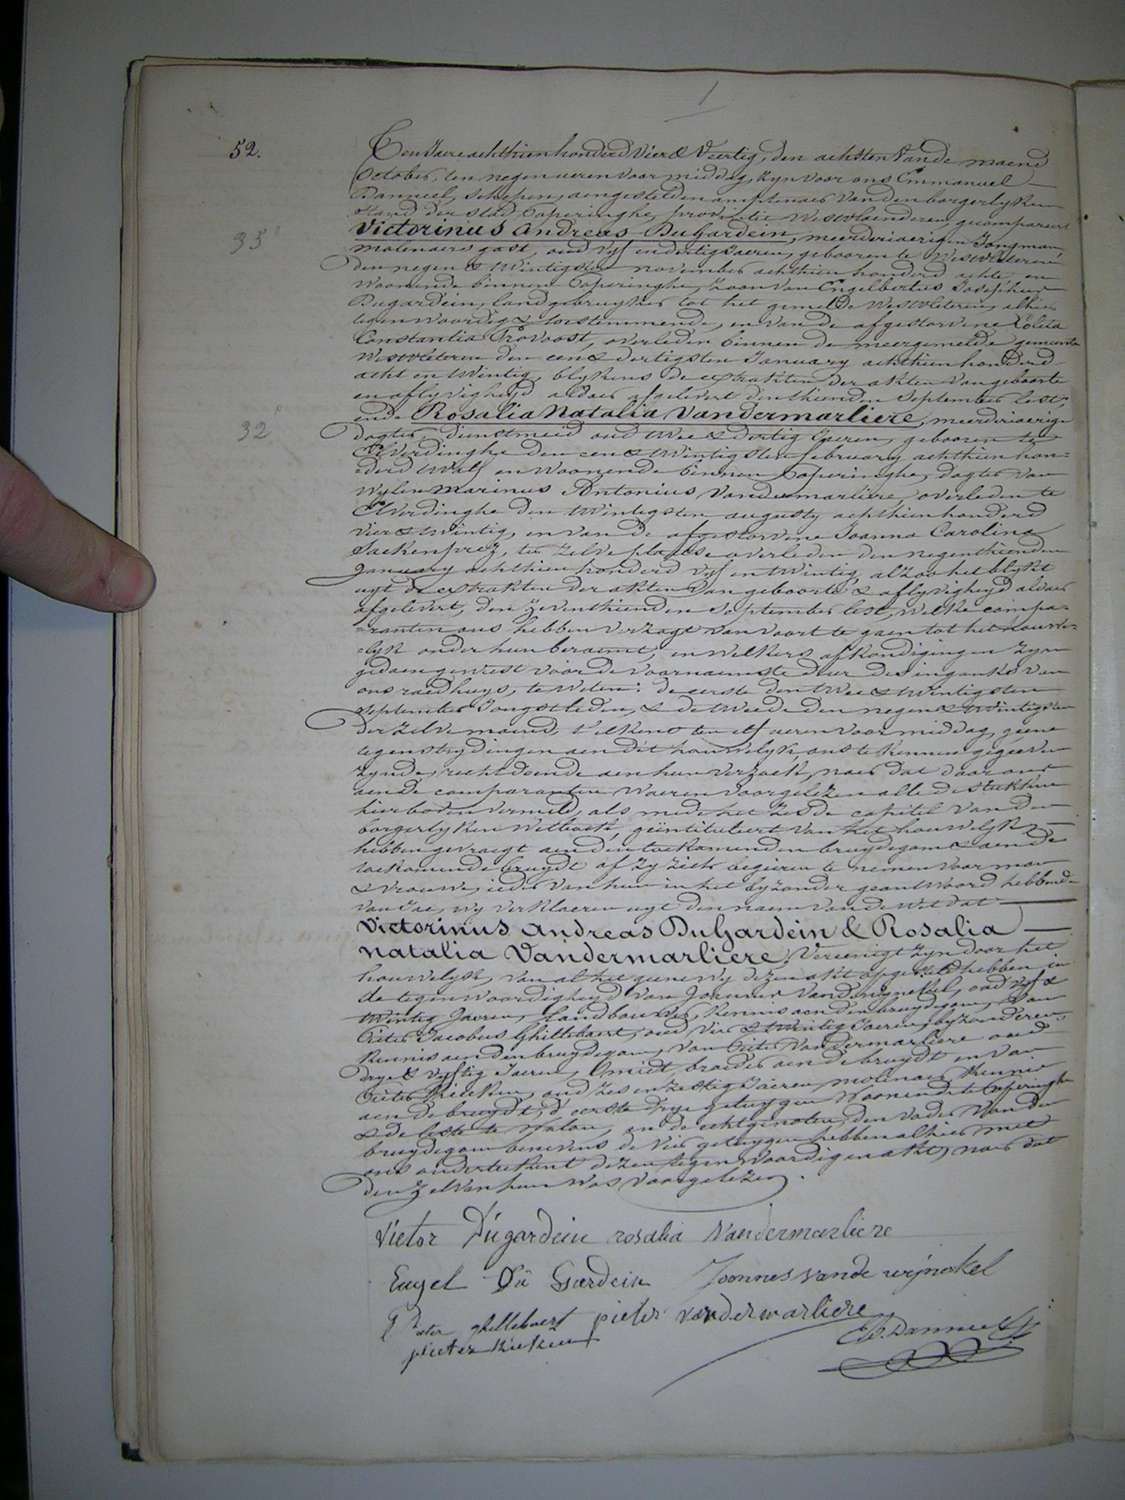 1
52.
Ten Jaere achthien honderd vier & Veertig, den achsten van de maend
October, ten negen ueren voor middag, zyn voor ons Emmanuel
Banneel, schepen, aengestelden amptenaer van den borgerlyken
stand der stad Poperinghe, provintie Westvlaenderen, gecompareert
35
Victorinus Andreas DuGardein, meerderjaerigen Jongman,
molenaers gast, oud vyf en dertig Jaeren, gebooren te Westvleteren
den negen & twintigsten november achthien honderd achte en
woonende binnen Poperinghe, zoon van Engelbertus Josephus
Dugardein, landgebruyker tot het gemelde Westvleteren, alhier
tegenwoordig & toestemmende, en van de afgestorvene Colita
Constantia Provoost, overleden binnen de meergemelde gemeente
Westvleteren den een & dertigsten January achthien honderd
acht en twintig, blykens de extrakten der akten van geboorte
en aflyvigheyd aldaer afgelevert den thienden September lest,
32
ende Rosalia Natalia Vandermarliere, meerderjaerige
dogter, dienstmeid oud twee & dertig Jaeren, gebooren te
Elverdinghe den een & twintigsten february achthien hon-
derd twalf en woonende binnen Poperinghe, dogter van
wylen Marinus Antonius Vandermarliere, overleden te
Elverdinghe den twintigsten augusty achthien honderd
vier & twintig, en van de afgestorvene Joanna Carolina
ter zelve plaetse overleden den negenthienden
January achthien honderd vyf en twintig, alzoo het blykt
uyt de extrakten der akten van geboorte & aflyvigheyd aldaer
afgelevert, den zeventhienden September lest, welke compa-
ranten ons hebben verzogt van voort te gaen tot het houwe-
lyk onder hun beraemt, en welkers afkondigingen zyn
gedaen geweest voor de voornaemste deur des ingangs van
ons raedhuys, te weten: de eerste den twee & twintigsten
September Jongstleden, & de tweede den negen & twintigsten
der zelve maend, telkens ten elf ueren voor middag, geene
tegenstrydingen aen dit houwelyk ons te kennen gegeven
zynde, rechtdoende aen hun verzoek, naer dat door ons
aen de comparanten waeren voorgelezen alle de stukken
hierboven vermeld, als mede het zesde capitel van den
borgerlyken wetboek, geïntituleert van het houwelyk,
hebben gevraegt aen den toekomenden bruydegom & aen de
toekomende bruydt of zy zich begeeren te nemen voor man
& vrouwe, ieder van hun in het byzonder geantwoord hebbende
van Jae, wy verklaeren uyt den naem van de wet dat
Victorinus Andreas DuGardein & Rosalia
Natalia Vandermarliere, vereenigt zyn door het
houwelyk, van al het geene wy dezen akt opgesteld hebben in
de tegenwoordigheyd van Joannes Vandewynckel, oud vyf &
twintig Jaeren, landbouwer, kennis aen den bruydegom, van
Pieter Jacobus Ghillebaert, oud vier & twintig Jaeren, byzonderen,
kennis aen den bruydegom, van Pieter Vandermarliere oud
drye & vyftig Jaeren, smidt, broeder aen de bruydt en van
Pieter Kieken, oud zes en zestig Jaeren, molenaer kennis
aen de bruydt, d'eerste drye getuygen woonende te Poperinghe
& de leste te Watou, en de echtgenoten, den vader van den
bruydegom benevens de vier getuygen hebben alhier met
ons onderteekent dezen tegenwoordigen akt, naer dat
den zelven hun was voorgelezen.
Victor Dúgardein rosalia Vandermarliere
Engel Dú Gardein Joonnes vande wijnckel
Pieter ghillebaert pieter vandermarliere
pieter kieken Em. Banneel